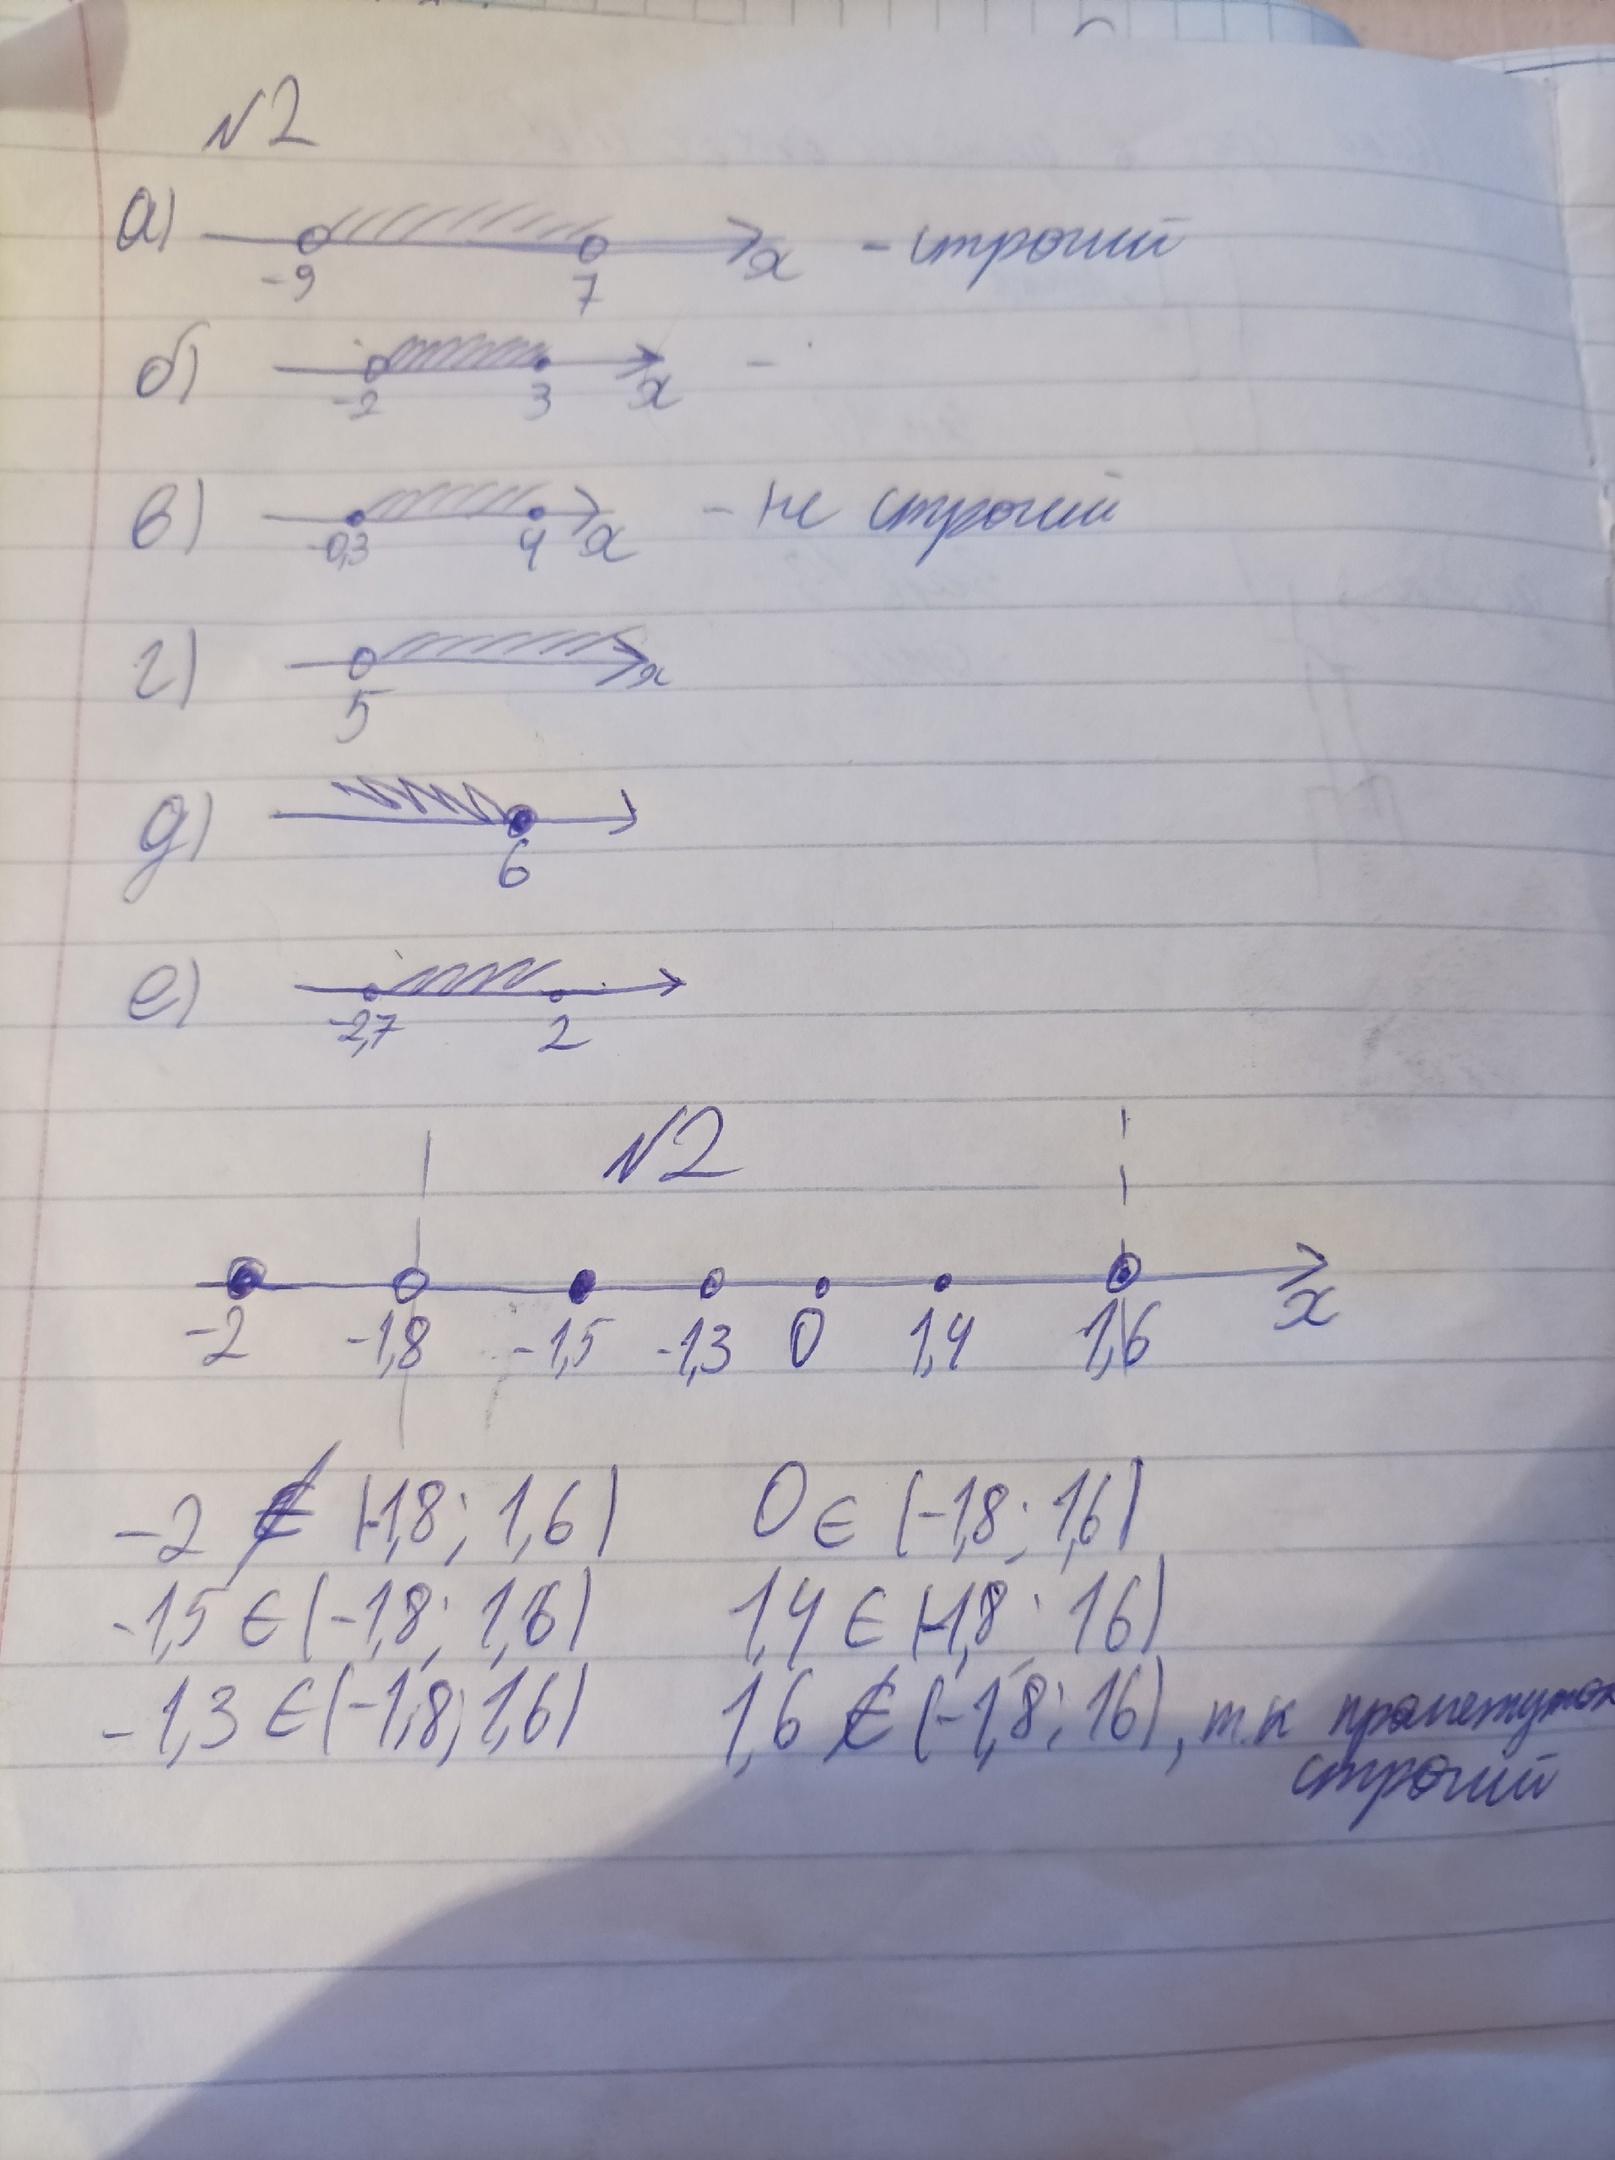 №2
а) -9 7 x - строгий
б) -2 3 x -
в) -0,3 4 x - не строгий
г) 5 x
д) 6
е) -2,7 2
№2
-2 -1,8 -1,5 -1,3 0 1,4 1,6 x
-2 ∉ (-1,8; 1,6) 0 ∈ (-1,8; 1,6)
-1,5 ∈ (-1,8; 1,6) 1,4 ∈ (-1,8; 1,6)
-1,3 ∈ (-1,8; 1,6) 1,6 ∉ (-1,8; 1,6), т.к промежуток
строгий